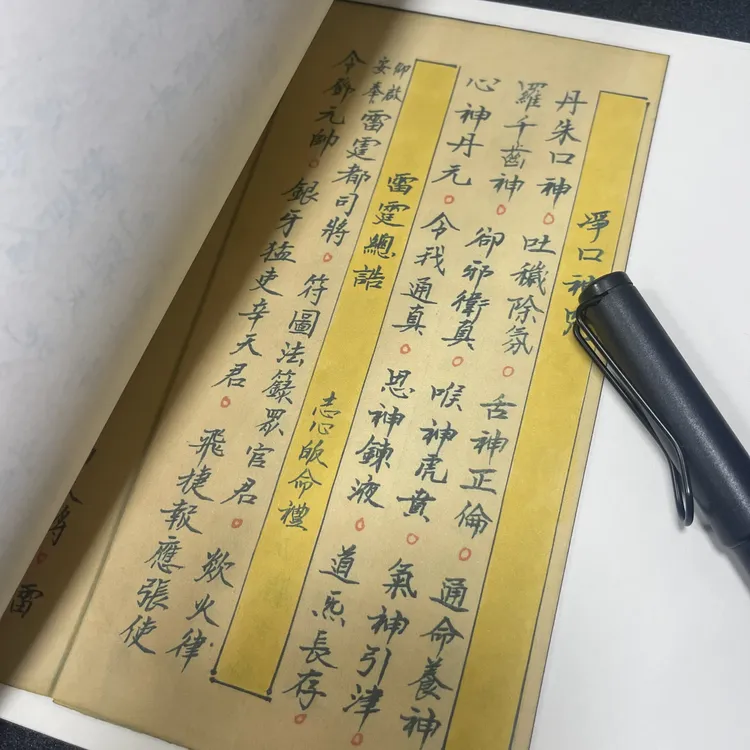 淨口神
丹朱口神○吐穢除氛○舌神正倫○通命養神
羅千齒神○卻邪衛真○喉神虎賁○氣神引津○
心神丹元○令我通真○思神鍊液○道炁長存○
雷霆總誥 志心皈命禮
仰啟
安奉
雷霆都司將○符圖法籙眾官君○欻火律
令鄧元帥○銀牙猛吏辛天君○飛捷報應張使
將○雷